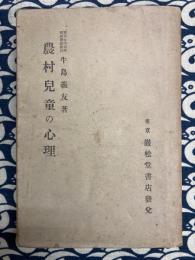 牛島義友著
農村兒童の心理
東京 巖松堂書店發兌